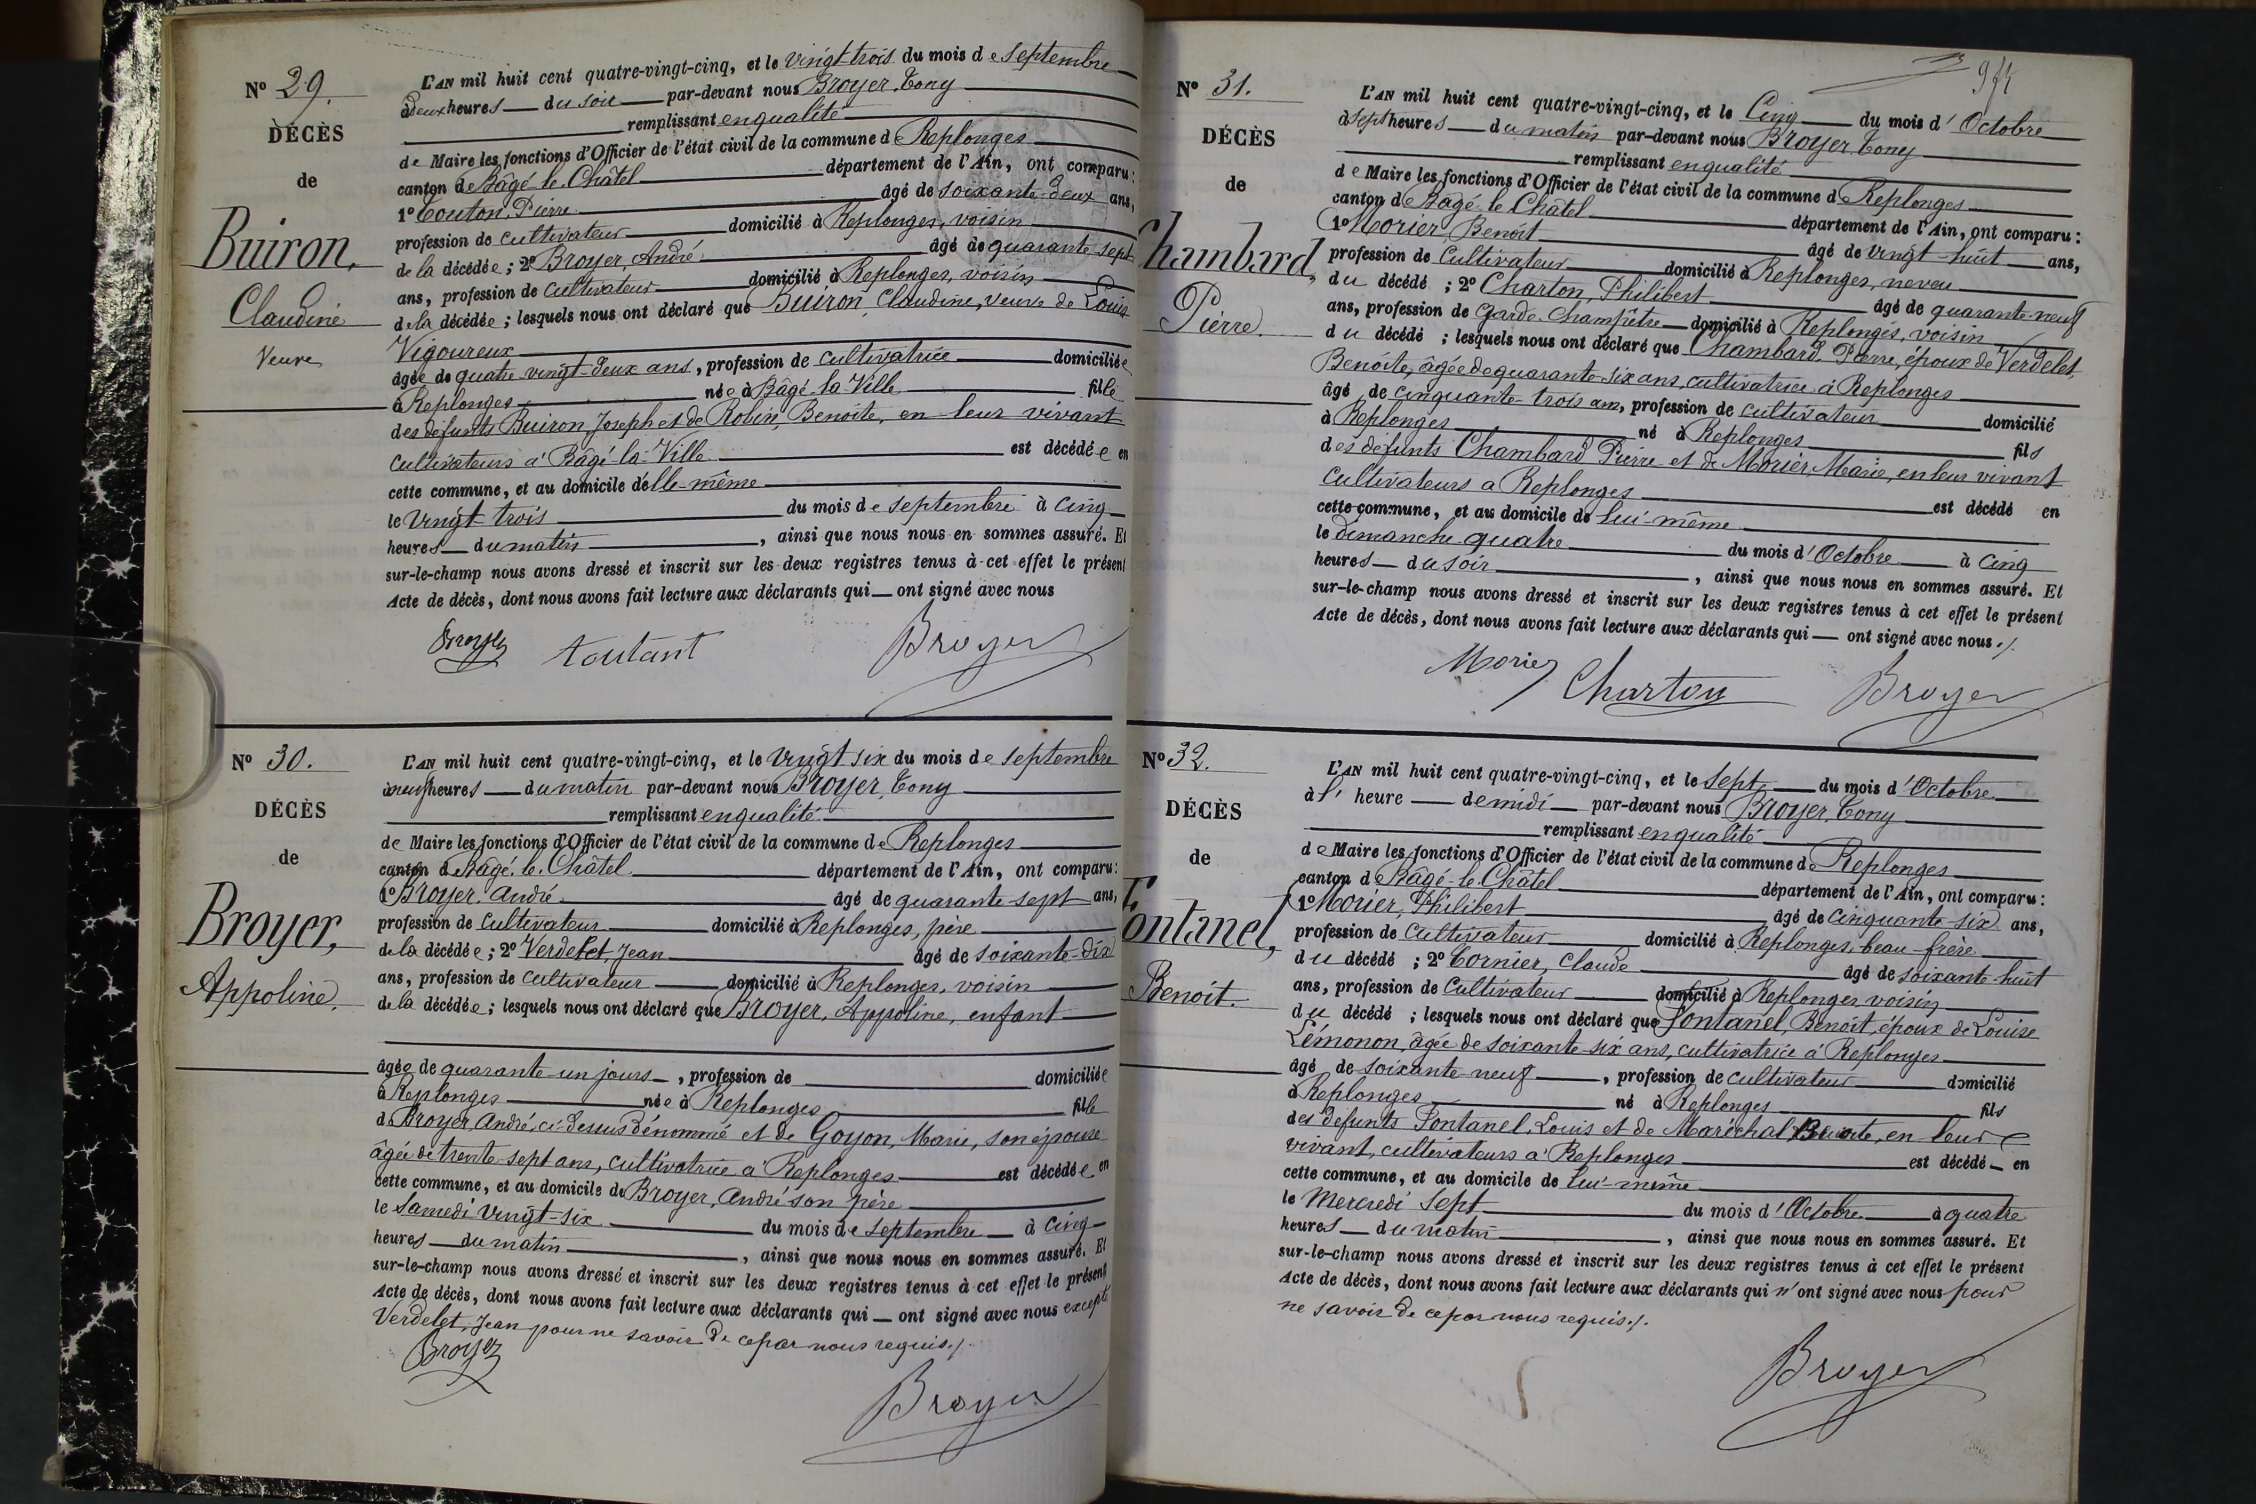 N° 29.
DÉCÈS
de
Buiron,
Claudine
Veuve
L'AN mil huit cent quatre-vingt-cinq, et le vingt trois du mois de septembre
à deux heures du soir par-devant nous Broyer, Tony
remplissant en qualité
de Maire les fonctions d'Officier de l'état civil de la commune de Replonges
canton de Bâgé-le-Châtel département de l'Ain, ont comparu:
1° Touton, Pierre âgé de soixante-deux ans,
profession de cultivateur domicilié à Replonges, voisin
de la décédée; 2° Broyer, André âgé de quarante-sept
ans, profession de cultivateur domicilié à Replonges, voisin
de la décédée; lesquels nous ont déclaré que Buiron, Claudine, veuve de Louis
Vigoureux
âgée de quatre vingt-deux ans, profession de cultivatrice domiciliée
à Replonges née à Bâgé-la-Ville fille
des défunts Buiron, Joseph et de Robin, Benoite, en leur vivant
cultivateurs à Bâgé-la-Ville est décédée en
cette commune, et au domicile d'elle-même
le vingt-trois du mois de septembre à cinq
heures du matin, ainsi que nous nous en sommes assuré. Et
sur-le-champ nous avons dressé et inscrit sur les deux registres tenus à cet effet le présent
Acte de décès, dont nous avons fait lecture aux déclarants qui ont signé avec nous
Broyer toutant Broyer
N° 30.
DÉCÈS
de
Broyer,
Appoline.
L'AN mil huit cent quatre-vingt-cinq, et le vingt six du mois de septembre
à neuf heures du matin par-devant nous Broyer, Tony
remplissant en qualité
de Maire les fonctions d'Officier de l'état civil de la commune de Replonges
canton de Bâgé-le-Châtel département de l'Ain, ont comparu:
1° Broyer, André âgé de quarante-sept ans,
profession de cultivateur domicilié à Replonges, père
de la décédée; 2° Verdelet, Jean âgé de soixante-dix
ans, profession de cultivateur domicilié à Replonges, voisin
de la décédée; lesquels nous ont déclaré que Broyer, Appoline, enfant
âgée de quarante un jours, profession de domiciliée
à Replonges née à Replonges fille
de Broyer, André, ci-dessus dénommé et de Goyon, Marie, son épouse
âgée de trente-sept ans, cultivatrice à Replonges est décédée en
cette commune, et au domicile de Broyer, André son père
le Samedi vingt-six du mois de septembre à cinq
heures du matin, ainsi que nous nous en sommes assuré. Et
sur-le-champ nous avons dressé et inscrit sur les deux registres tenus à cet effet le présent
Acte de décès, dont nous avons fait lecture aux déclarants qui ont signé avec nous excepté
Verdelet, Jean pour ne savoir de ce par nous requis./.
Broyer
Broyer
N° 31.
DÉCÈS
de
Chambard,
Pierre.
L'AN mil huit cent quatre-vingt-cinq, et le Cinq du mois d'Octobre
à sept heures du matin par-devant nous Broyer, Tony
remplissant en qualité
de Maire les fonctions d'Officier de l'état civil de la commune de Replonges
canton de Bâgé-le-Châtel département de l'Ain, ont comparu:
1° Morier, Benoît âgé de vingt-huit ans,
profession de cultivateur domicilié à Replonges, neveu
du décédé; 2° Charton, Philibert âgé de quarante-neuf
ans, profession de Garde-Champêtre domicilié à Replonges, voisin
du décédé; lesquels nous ont déclaré que Chambard, Pierre, époux de Verdelet,
Benoite, âgée de quarante-six ans, cultivatrice à Replonges
âgé de cinquante-trois ans, profession de cultivateur domicilié
à Replonges né à Replonges fils
des défunts Chambard, Pierre et de Morier, Marie, en leur vivant
cultivateurs à Replonges est décédé en
cette commune, et au domicile de lui-même
le dimanche quatre du mois d'Octobre à cinq
heures du soir, ainsi que nous nous en sommes assuré. Et
sur-le-champ nous avons dressé et inscrit sur les deux registres tenus à cet effet le présent
Acte de décès, dont nous avons fait lecture aux déclarants qui ont signé avec nous./.
Morier Charton Broyer
N° 32.
DÉCÈS
de
Fontanel,
Benoit.
L'AN mil huit cent quatre-vingt-cinq, et le sept du mois d'Octobre
à l'heure de midi par-devant nous Broyer, Tony
remplissant en qualité
de Maire les fonctions d'Officier de l'état civil de la commune de Replonges
canton de Bâgé-le-Châtel département de l'Ain, ont comparu:
1° Morier, Philibert âgé de cinquante-six ans,
profession de cultivateur domicilié à Replonges, beau-frère
du décédé; 2° Cornier, Claude âgé de soixante-huit
ans, profession de cultivateur domicilié à Replonges voisin
du décédé; lesquels nous ont déclaré que Fontanel, Benoit, époux de Louise
Lémonon, âgée de soixante-six ans, cultivatrice à Replonges
âgé de soixante-neuf, profession de cultivateur domicilié
à Replonges né à Replonges fils
des défunts Fontanel, Louis et de Maréchal, Benoite, en leur
vivant, cultivateurs à Replonges est décédé en
cette commune, et au domicile de lui-même
le Mercredi sept du mois d'Octobre à quatre
heures du matin, ainsi que nous nous en sommes assuré. Et
sur-le-champ nous avons dressé et inscrit sur les deux registres tenus à cet effet le présent
Acte de décès, dont nous avons fait lecture aux déclarants qui n'ont signé avec nous pour
ne savoir de ce par nous requis./.
Broyer